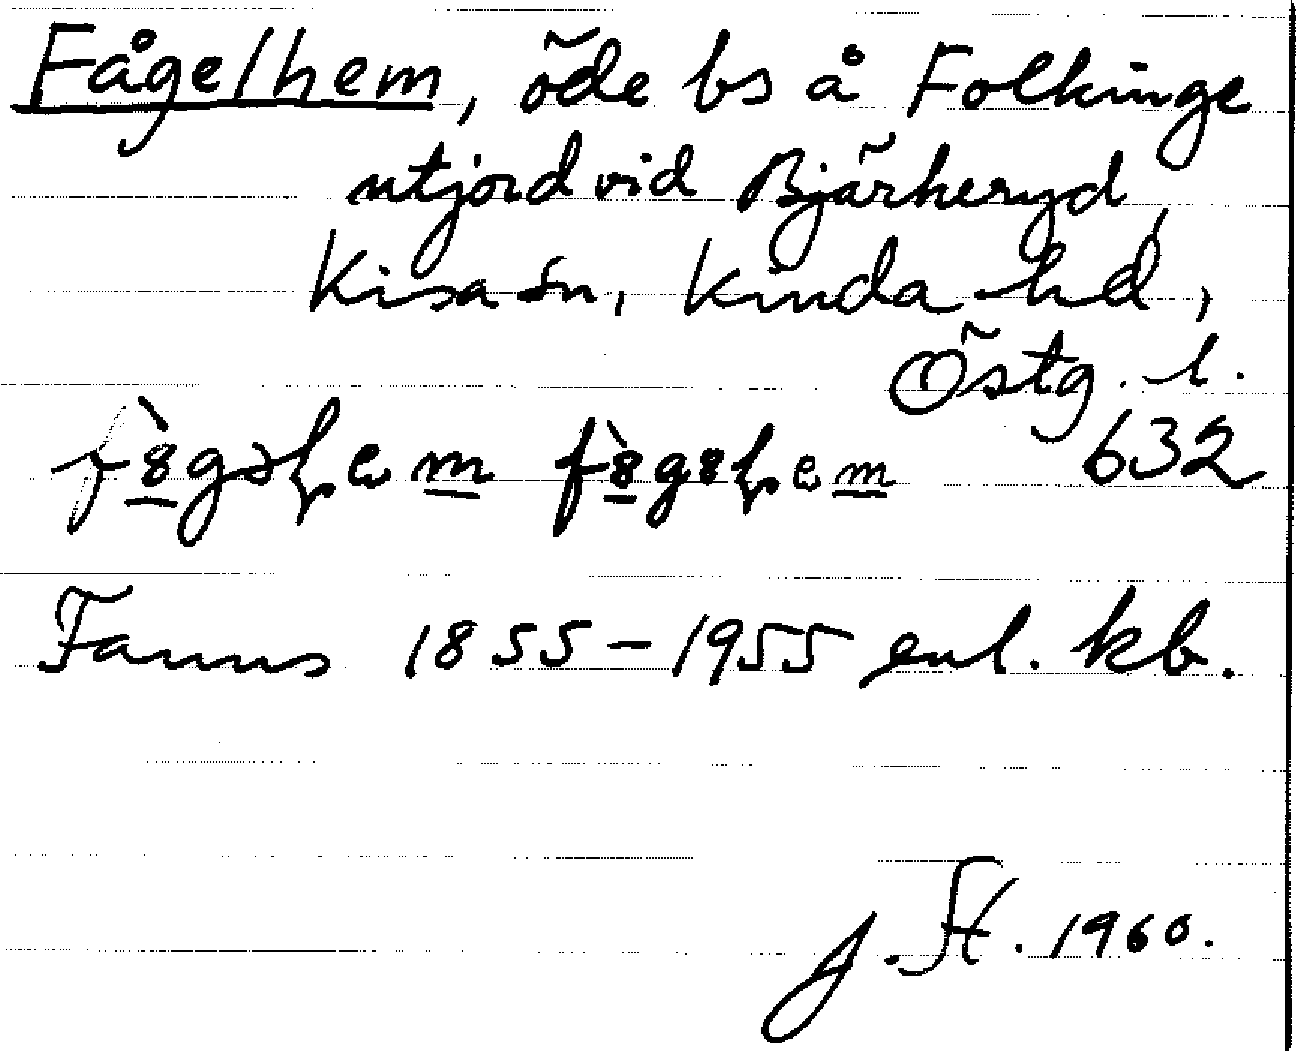 Fågelhem, öde bs å Folkinge
utjord vid Bjärkeryd,
Kisa sn, Kinda hd,
Östg. l.
632
Fanns 1855–1955 enl. kb.
J. St. 1960.